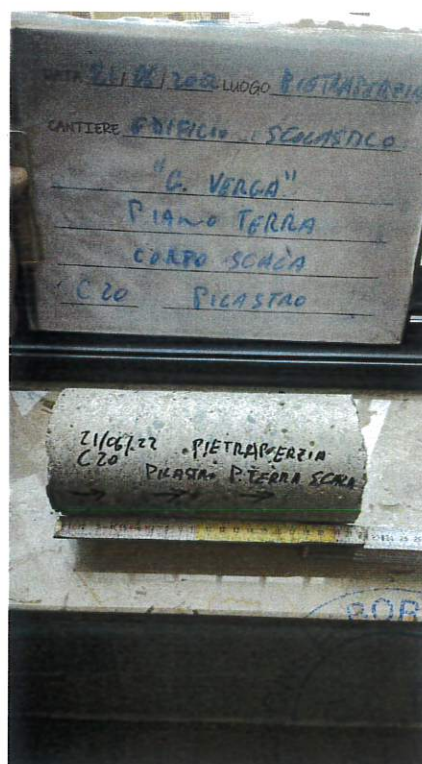 DATA 21/06/2022 LUOGO PIETRAPERZIA
CANTIERE EDIFICIO SCOLASTICO
"G. VERGA"
PIANO TERRA
CORPO SCALA
C20 PILASTRO
21/06/22 PIETRAPERZIA
C20
PILASTRO P. TERRA SCALA